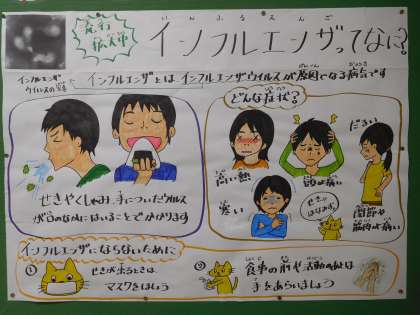 いんふるえんざ
インフルエンザってなに?
流行
拡大中
インフルエンザ
ウイルスの写真
インフルエンザとは、インフルエンザウイルスが原因でなる病気です
げんいん
びょうき
せきやくしゃみ、手についたウイルス
が口のなかにはいることでかかります
どんな症状?
高い熱
頭が痛い
だるい
寒い
せきや
はなみず
関節や
筋肉が痛い
インフルエンザにならないために
① せきが出るときは
マスクをしましょう
② 食事の前や活動の後は
手をあらいましょう